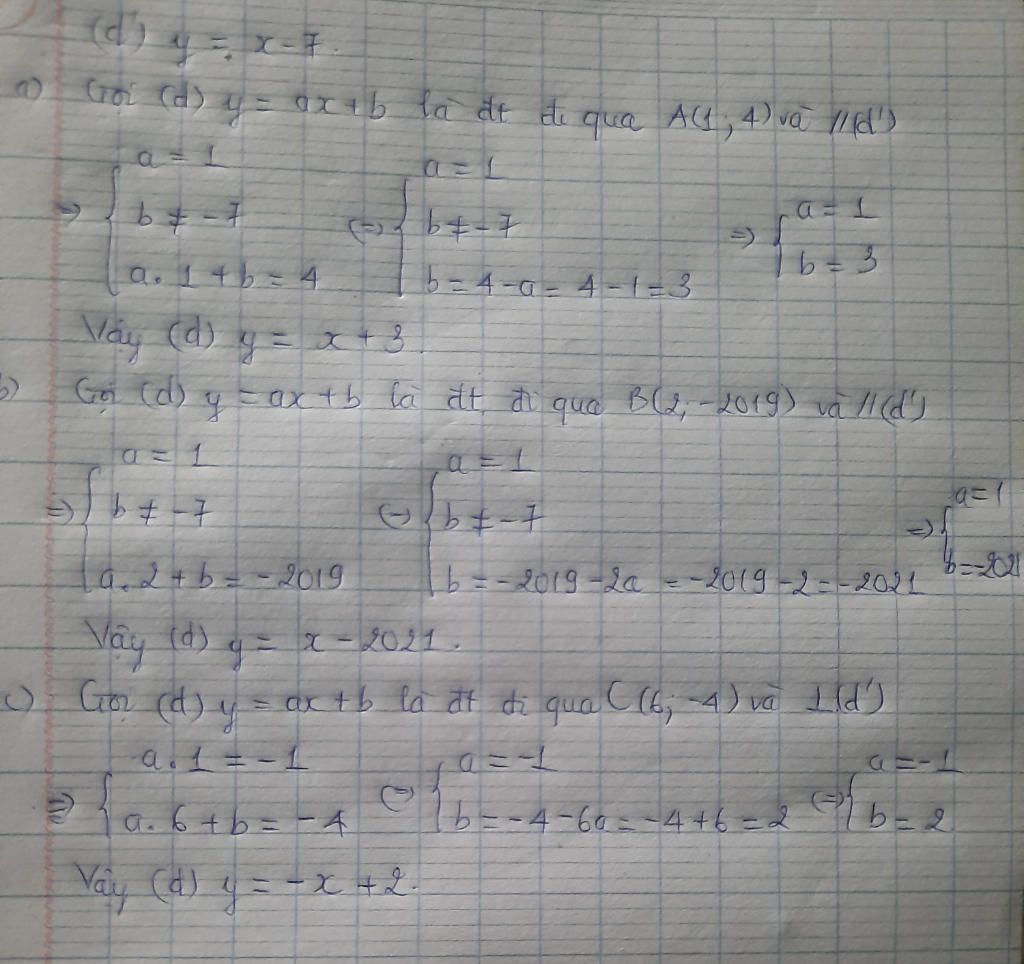 (d') y = x - 7.
a) Gọi (d) y = ax + b là đt đi qua A(1; 4) và //(d')
a = 1 a = 1
⇒ { b ≠ -7 (⇒) { b ≠ -7 ⇒ { a = 1
a. 1 + b = 4 b = 4 - a = 4 - 1 = 3 b = 3
Vậy (d) y = x + 3.
b) Gọi (d) y = ax + b là đt đi qua B(2; -2019) và //(d')
a = 1 a = 1 a = 1
⇒ { b ≠ -7 (⇒) { b ≠ -7 ⇒ {
a. 2 + b = -2019 b = -2019 - 2a = -2019 - 2 = -2021 b = -2021
Vậy (d) y = x - 2021.
c) Gọi (d) y = ax + b là đt đi qua C(6; -4) và ⊥(d')
a. 1 = -1 a = -1 a = -1
⇒ { a. 6 + b = -4 (⇒) { b = -4 - 6a = -4 + 6 = 2 (⇒) { b = 2
Vậy (d) y = -x + 2.